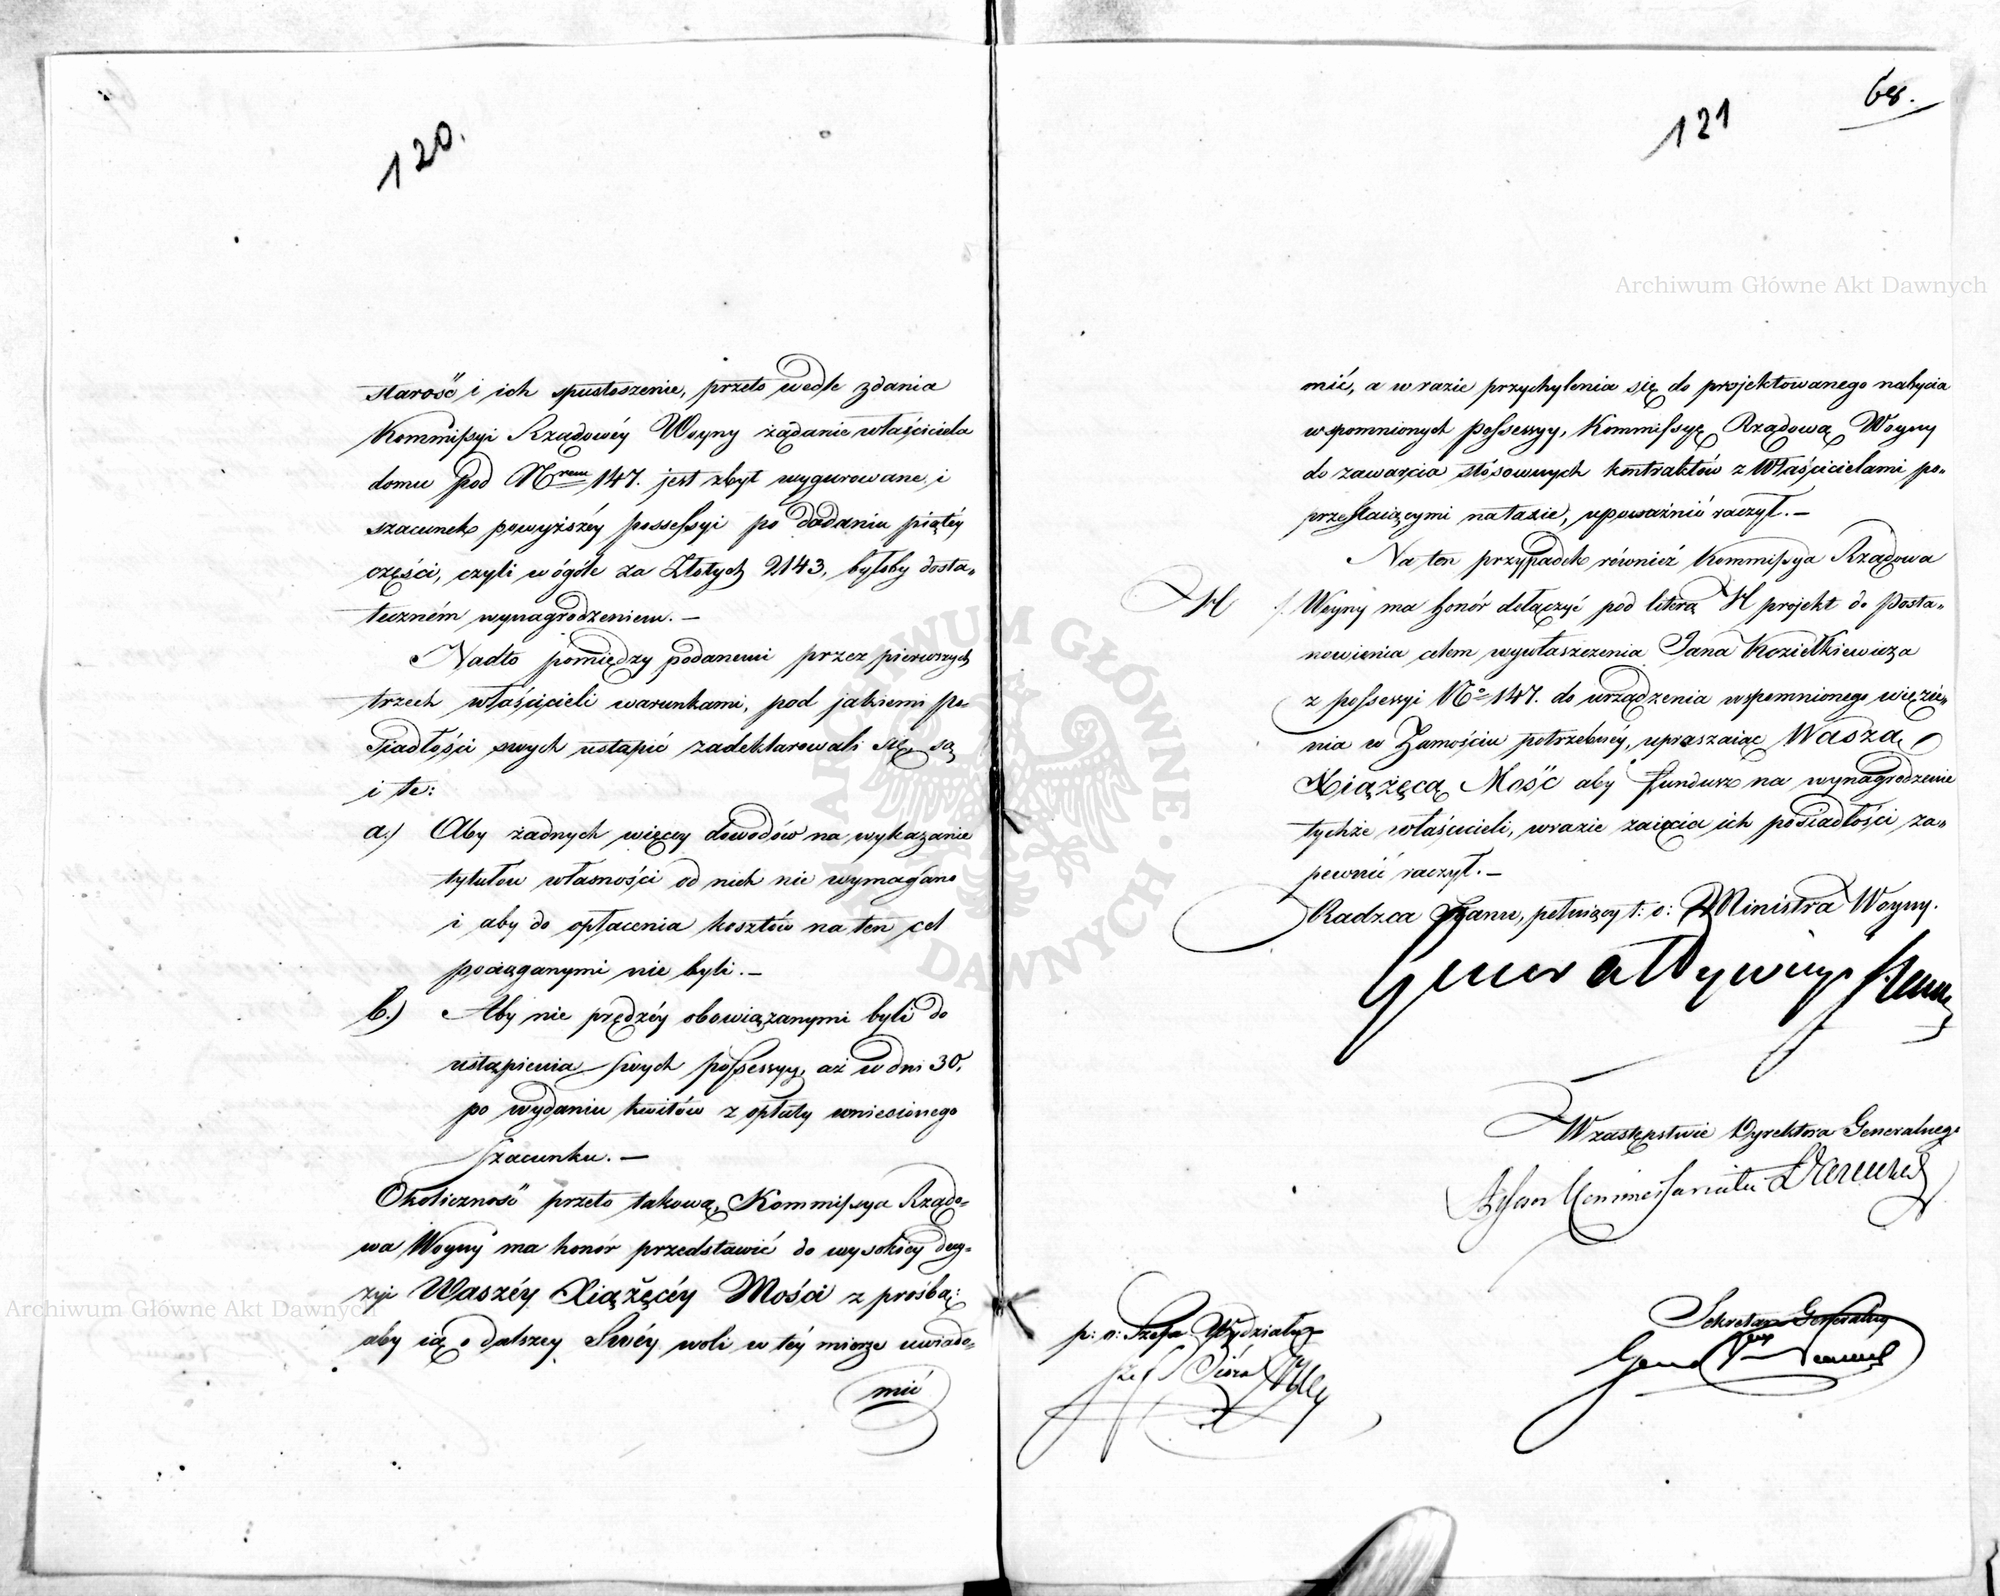 120.
starość i ich spustoszenie, przeto wedle zdania
Kommissyi Rządowéy Woyny żądanie właściciela
domu pod Nrem 147. jest zbyt wygurowane, i
szacunek powyższéy possessyi po dodaniu piątéy
części, czyli w ogóle za Złotych 2143, byłoby dosta-
teczném wynagrodzeniem. —
Nadto pomiędzy podanemi przez pierwszych
trzech właścicieli warunkami, pod jakiemi po-
siadłości swych ustąpić zadeklarowali się, są
i te:
a.) Aby żadnych więcey dowodów na wykazanie
tytułów własności od nich nie wymagano
i aby do opłacenia kosztów na ten cel
pociąganymi nie byli. —
b.) Aby nie prędzéy obowiązanymi byli do
ustąpienia swych possessyy, aż w dni 30,
po wydaniu kwitów z opłaty wniesionego
szacunku. —
Okoliczność przeto takową, Kommissya Rządo-
wa Woyny ma honór przedstawić do wysokiey decy-
zyi Waszéy Xiążęcéy Mości z prośbą:
aby ią o dalszey Swéy woli w téy mierze uwiado-
mić
121
68.
mić, a w razie przychylenia się do projektowanego nabycia
wspomnionych possessyy, Kommissyę Rządową Woyny
do zawarcia stósownych kontraktów z Właścicielami po-
przestaiącymi na taxie, upoważnić raczył. —
Na ten przypadek również Kommissya Rządowa
H /. Woyny ma honór dołączyć pod literą H projekt do Posta-
nowienia celem wywłaszczenia Jana Koziełkiewicza
z possessyi No 147. do urządzenia wspomnionego więzie-
nia w Zamościu potrzebney, upraszaiąc Waszą
Xiążęcą Mość aby fundusz na wynagrodzenie
tychże właścicieli, w razie zaięcia ich posiadłości za-
pewnić raczył. —
Radzca Stanu, pełniący t: o: Ministra Woyny.
Generał Dywizyi
W zastępstwie Dyrektora Generalnego
Kommissariatu
p: o: Szefa Wydziału
Sekretarz Generalny
Archiwum Główne Akt Dawnych
Archiwum Główne Akt Dawnych
ARCHIWUM GŁÓWNE AKT DAWNYCH